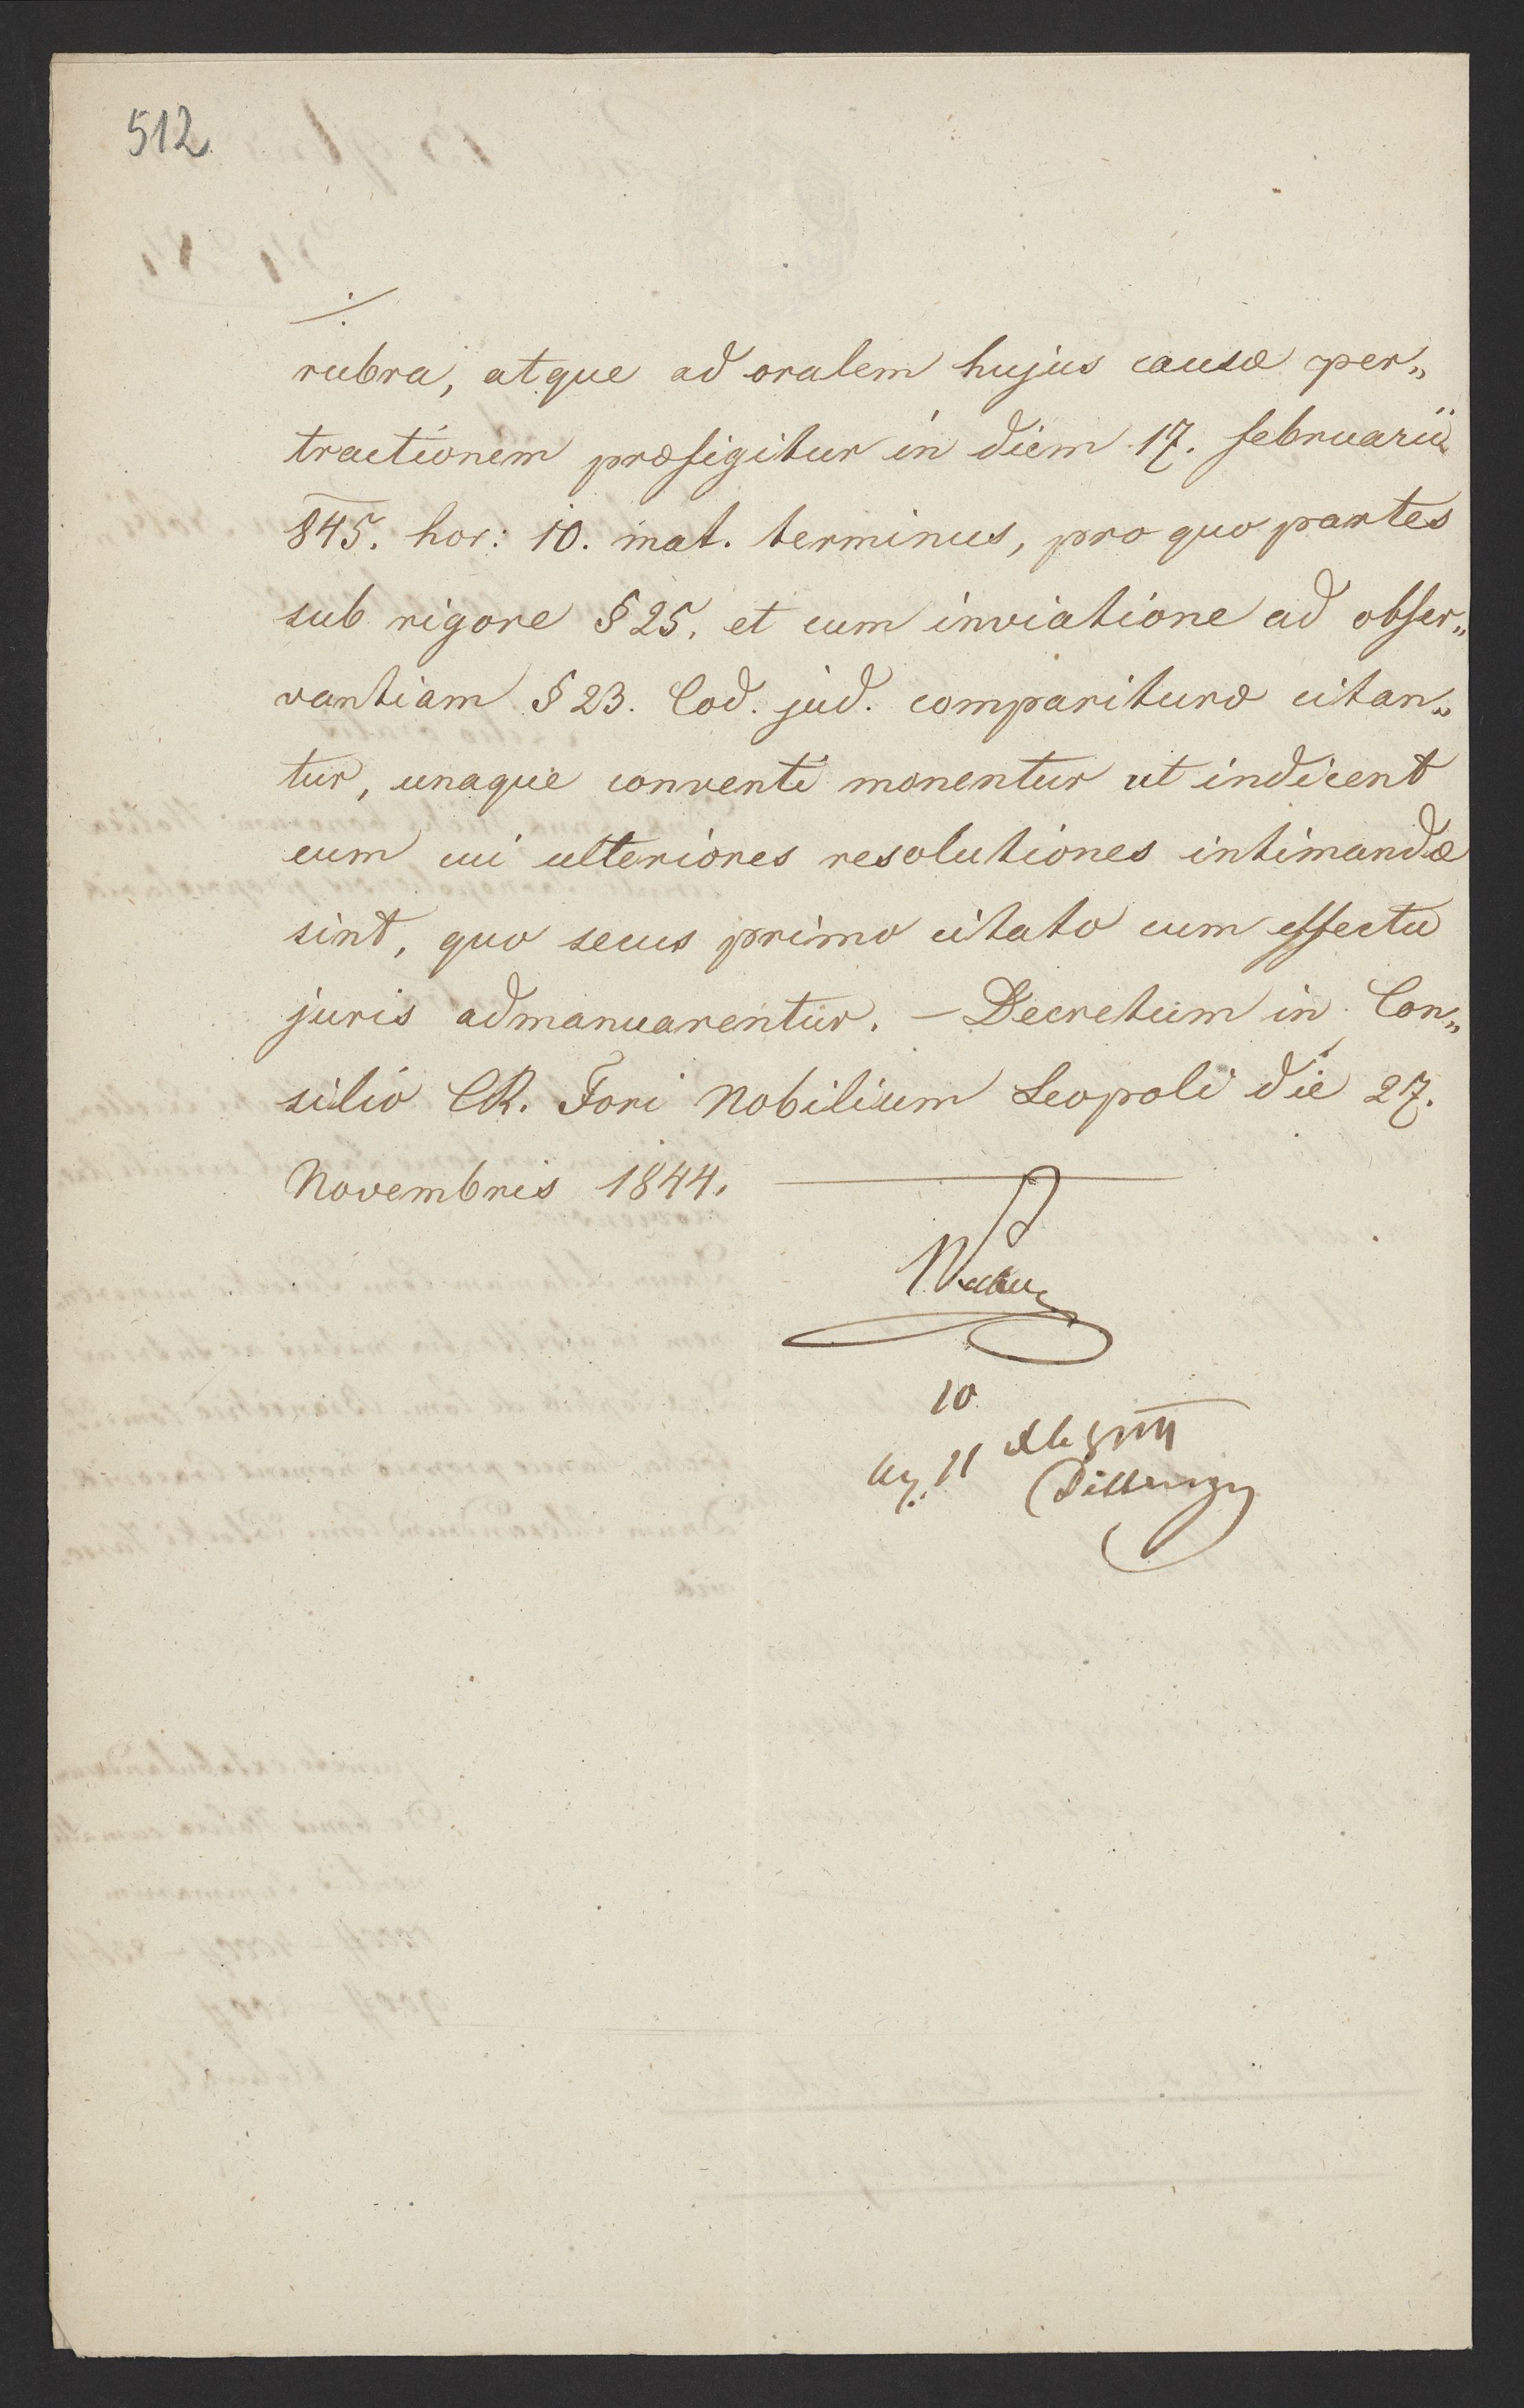 512
./.
rubra, atque ad oralem hujus causæ per„
tractionem præfigitur in diem 17. februarii
845. hor: 10. mat. terminus, pro quo partes
sub rigore § 25. et cum inviatione ad obser„
vantiam § 23. Cod. jud. comparituræ citan„
tur, unaque conventi monentur ut indicent
eum cui ulteriores resolutiones intimandæ
sint, quo secus primo citato cum effectu
juris admanuarentur. – Decretum in Con„
silio CR. Fori Nobilium Leopoli die 27.
Novembris 1844.
10
11